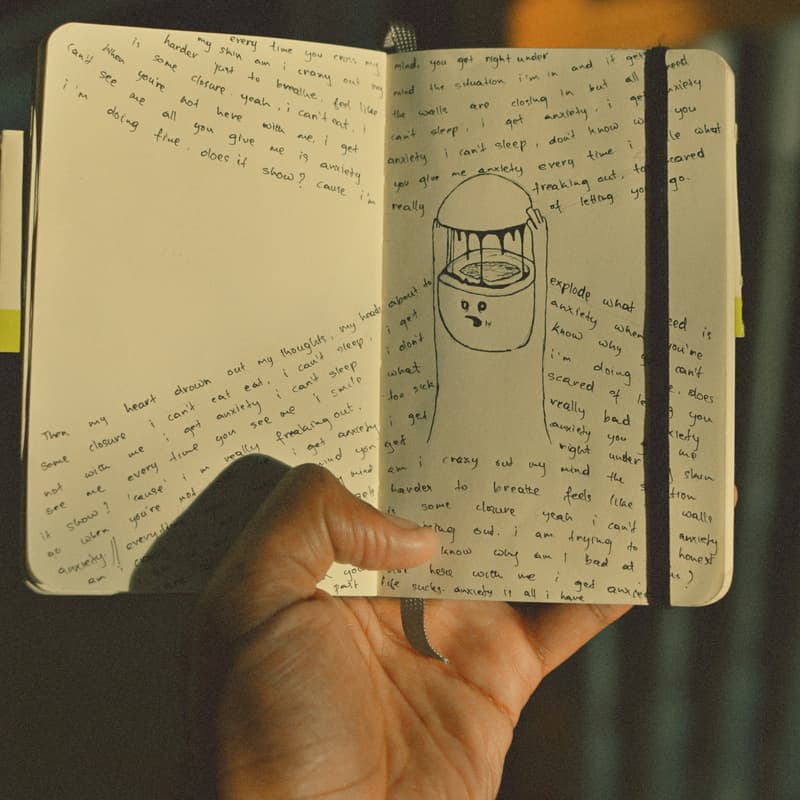 every time you cross my
my skin am i crazy out my
is harder just to breathe. feel like
when some closure. yeah, i can't eat, i
can't you're not here with me, i get
see me all you give me is anxiety
i'm doing fine. does it show? cause i'm
Then my heart drown out my thoughts, my heads
some closure i can't eat eat, i can't sleep,
not with me i get anxiety i can't sleep
see me every time you see me i smile
it show? 'cause' i'm really freaking out.
go when you're not i get anxiety
anxiety everytime mind you
am i
mind, you get right under
mind the situation i'm in and it gets
the walls are closing in but all need
can't sleep, i get anxiety, i get anxiety
anxiety i can't sleep, don't know you
you give me anxiety every time i what
really freaking out, too scared
of letting you go.
about to explode what need is
i get anxiety when you're
i don't know why can't
what i'm doing does
too sick scared of you
i get really bad anxiety
get anxiety you me
right under skin
am i crazy out my mind the situation
harder to breathe feels like walls
is some closure yeah i can't anxiety
out. i am trying to honest
know why am i bad at
not here with me i get anxiety
past life sucks. anxiety is all i have